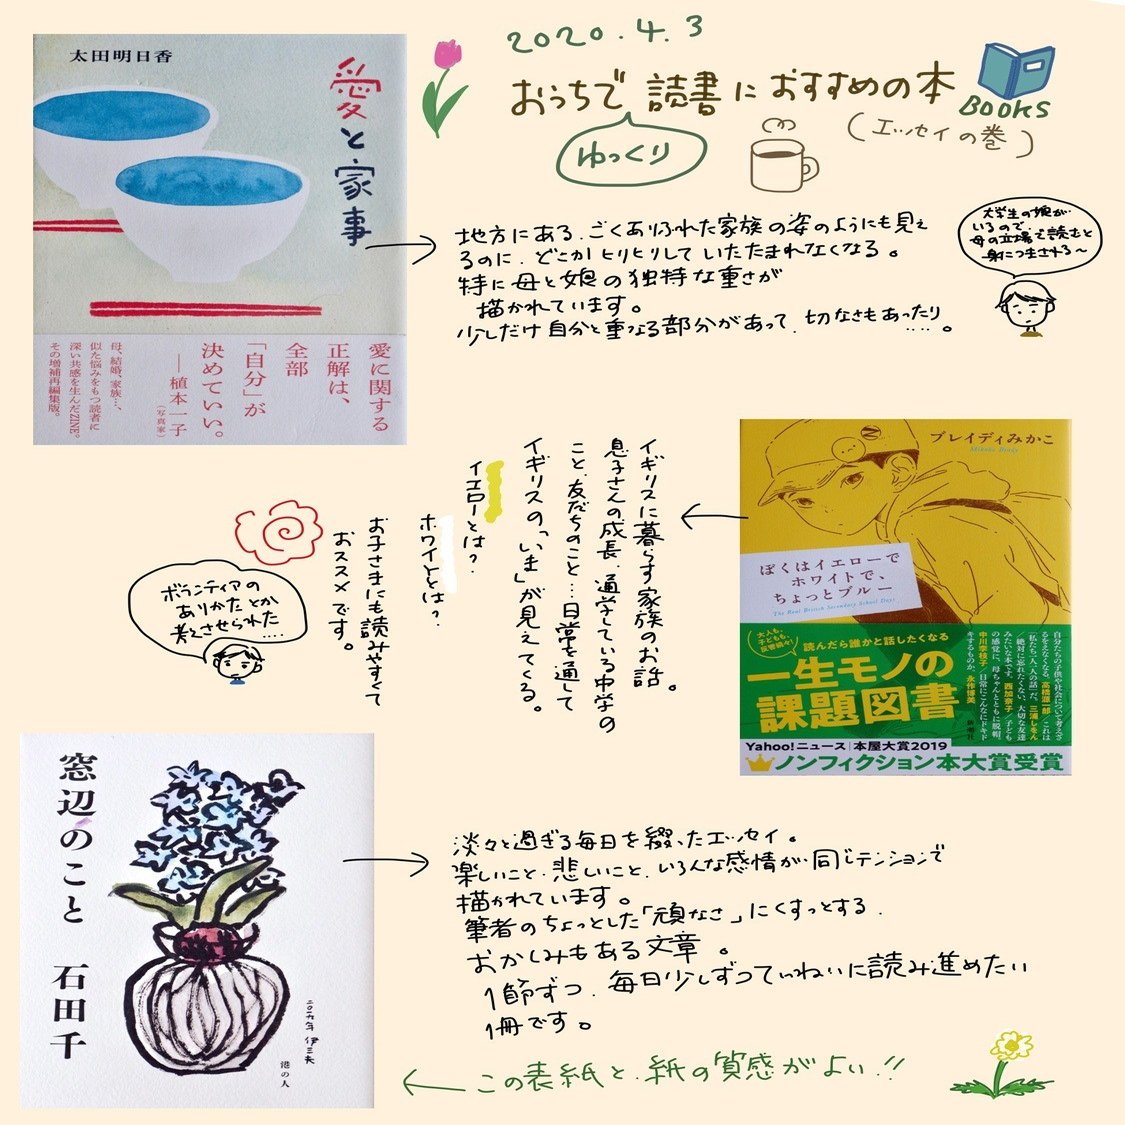 2020.4.3
おうちで読書におすすめの本
ゆっくり
(エッセイの巻)
BOOKS
太田明日香
愛と家事
愛に関する
正解は、
全部
「自分」が
決めていい。
——植本一子
(写真家)
母、結婚、家族…、
似た悩みをもつ読者に
深い共感を生んだZINE。
その増補再編集版。
地方にある、ごくありふれた家族の姿のようにも見え
るのに、どこかヒリヒリしていたたまれなくなる。
特に母と娘の独特な重さが
描かれています。
少しだけ自分と重なる部分があって、切なさもあったり
……。
大学生の娘が
いるので、
母の立場で読むと
身につまされる〜
ブレイディみかこ
Mikako Brady
ぼくはイエローで
ホワイトで、
ちょっとブルー
The Real British Secondary School Days
大人も、
子どもも、
反響続々!
読んだら誰かと話したくなる
一生モノの
課題図書
自分たちの子供や社会について考えざ
るをえなくなる。高橋源一郎/これは
「私たち」一人一人の話だ。三浦しをん/
絶対に忘れたくない、大切な友達
みたいな本です。西加奈子/子ども
の感覚に、母ちゃんとともに脱帽。
中川李枝子/日常にこんなにドキド
キするものか。永作博美
新潮社
Yahoo!ニュース|本屋大賞2019
ノンフィクション本大賞受賞
イギリスに暮らす家族のお話。
息子さんの成長、通学している中学の
こと、友だちのこと…日常を通して
イギリスの「いま」が見えてくる。
イエローとは?
ホワイトとは?
お子さまにも読みやすくて
おススメです。
ボランティアの
ありかたとか
考えさせられた....
窓辺のこと 石田千
二〇一九年 伊三夫
港の人
淡々と過ぎる毎日を綴ったエッセイ。
楽しいこと、悲しいこと、いろんな感情が同じテンションで
描かれています。
筆者のちょっとした「頑なさ」にくすっとする、
おかしみもある文章。
1節ずつ、毎日少しずつていねいに読み進めたい
1冊です。
この表紙と、紙の質感がよい!!